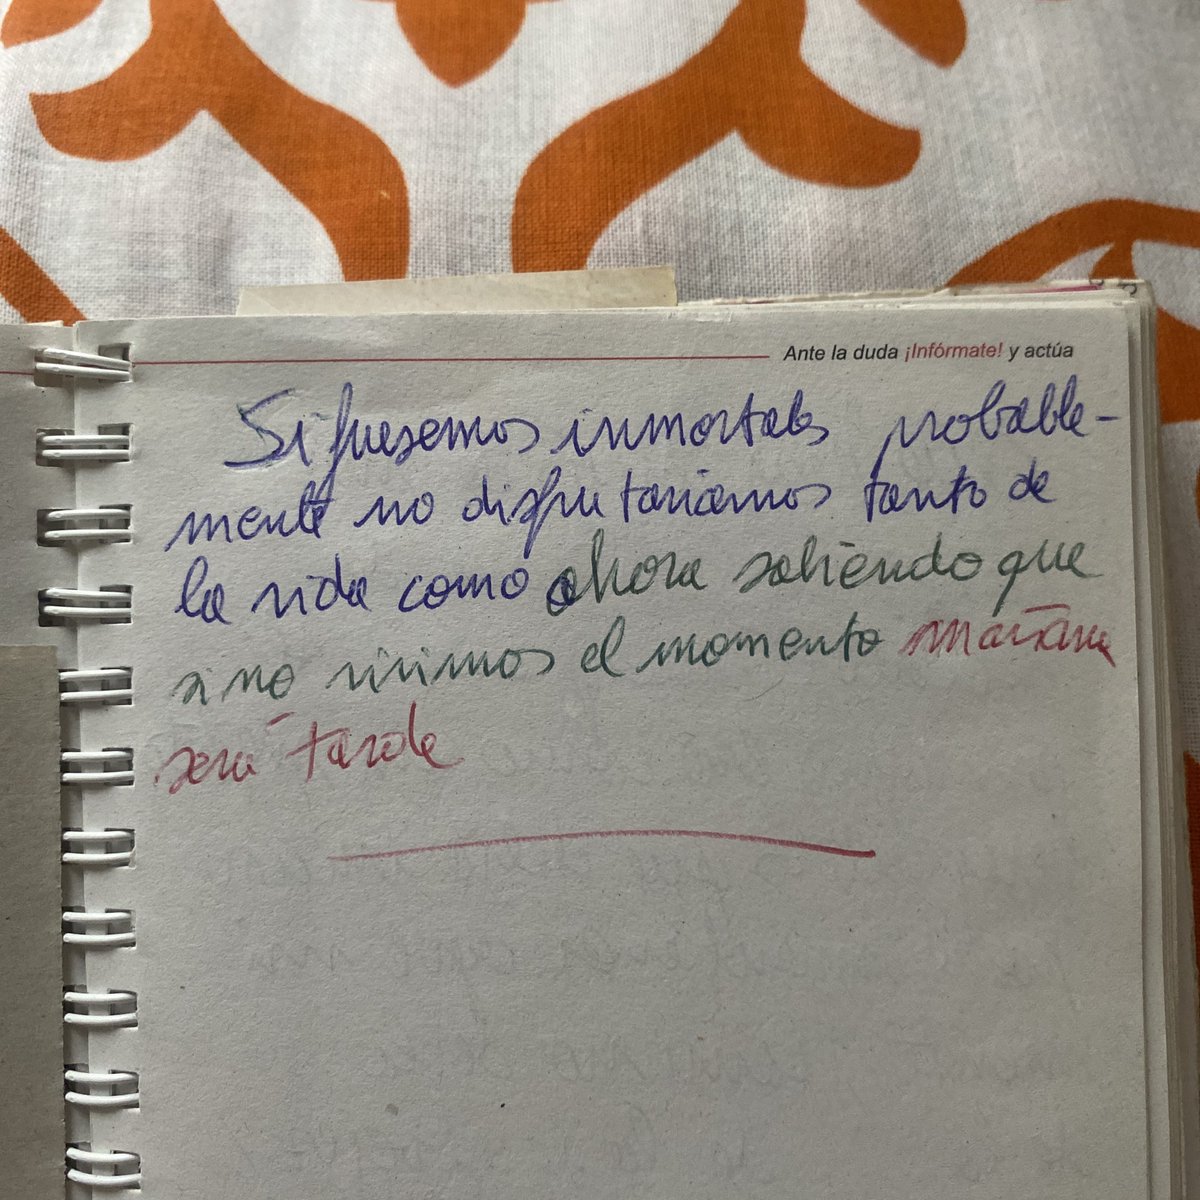 Ante la duda ¡Infórmate! y actúa
Si fuesemos inmortales probable-
mente no disfrutariamos tanto de
la vida como ahora sabiendo que
si no vivimos el momento mañana
será tarde